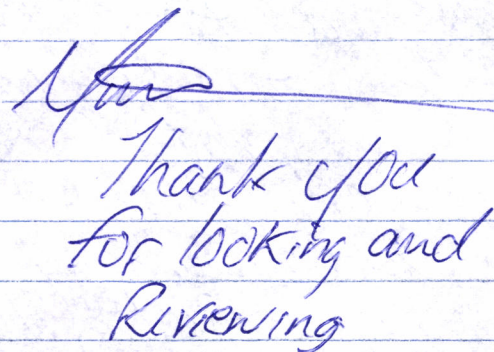 Thank you
for looking and
Reviewing